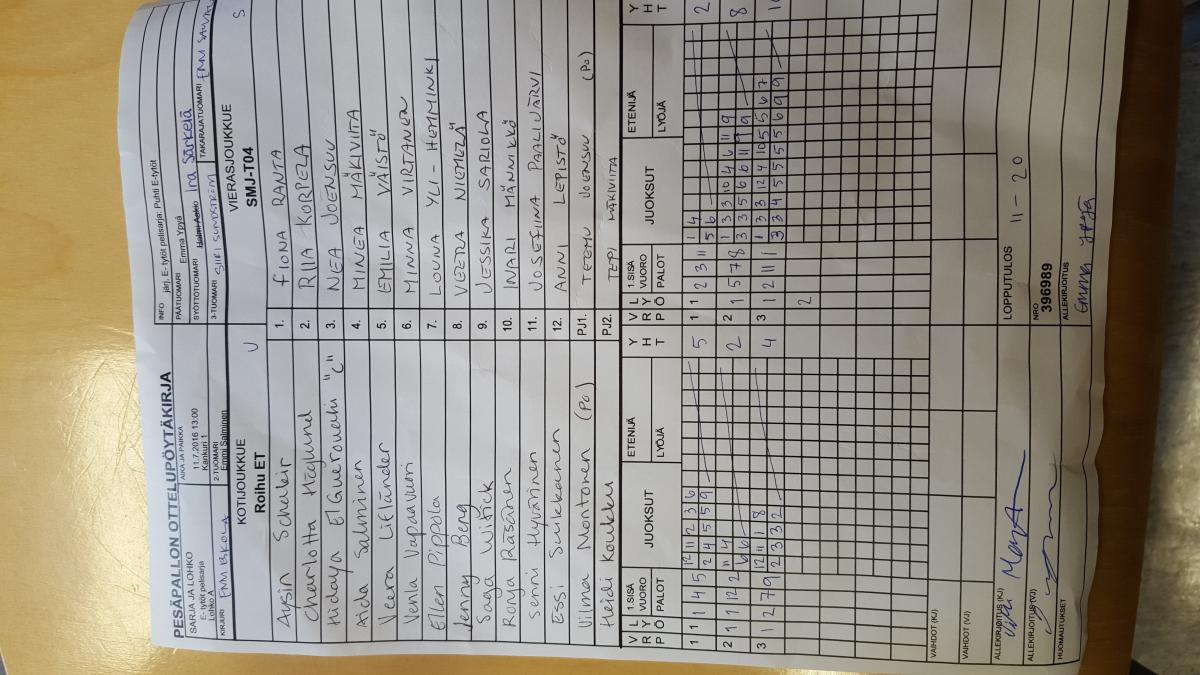 PESÄPALLON OTTELUPÖYTÄKIRJA
SARJA JA LOHKO
E- tytöt pelisarja
Lohko A
AIKA JA PAIKKA
11.7.2016 13:00
Kankuri 1
INFO järj. E- tytöt pelisarja: Puhti E-tytöt
PÄÄTUOMARI Emma Ypyä
SYÖTTÖTUOMARI Ina Särkelä
KIRJURI
2-TUOMARI
Emmi Salminen
3-TUOMARI SIIRI SUNDSTRÖM
TAKARAJATUOMARI
KOTIJOUKKUE
Roihu ET U
VIERASJOUKKUE
SMJ-T04 S
Aysin Schakir 1. FIONA RANTA
Charlotta Häglund 2. RIIA KORPELA
Hidaya El Gueroudhi "C" 3. NEA JOENSUU
Ada Salminen 4. MINEA MÄKIVIITA
Veera Lieländer 5. EMILIA VÄISTÖ
Venla Vapaavuori 6. MINNA VIRTANEN
Ellen Pippola 7. LOUNA YLI-HEMMINKI
Jenny Beng 8. VEERA NIEMELÄ
Saga Wirick 9. JESSIKA SARIOLA
Ronja Räsänen 10. INARI MÄNNIKKÖ
Senni Hyvärinen 11. JOSEFIINA PAALIJÄRVI
Essi Suikkanen 12. ANNI LEPISTÖ
Vilma Nontonen (Po) PJ1. TEEMU JOENSUU (Po)
Heidi Koukkus PJ2. TEPI MÄKIVIITA
V R P L Y Ö 1.SISÄ VUORO PALOT JUOKSUT ETENIJÄ LYÖJÄ Y H T V R P L Y Ö 1.SISÄ VUORO PALOT JUOKSUT ETENIJÄ LYÖJÄ Y H T
1 1 1 4 5 12 11 12 3 6 5 1 1 2 3 11 1 4 2
2 4 5 5 9 5 6
2 1 11 12 2 11 4 2 2 1 5 7 8 1 3 3 10 4 6 11 9 8
6 6 3 3 5 6 6 11 9 9
3 1 2 7 9 12 11 1 8 4 3 1 2 11 1 1 3 3 12 4 10 5 5 6 7
2 3 3 2 3 3 4 5 5 5 5 6 9 9
2
VAIHDOT (KJ)
VAIHDOT (VJ)
ALLEKIRJOITUS (KJ)
LOPPUTULOS 11 - 20
ALLEKIRJOITUS(VJ)
NRO
396989
HUOMAUTUKSET
ALLEKIRJOITUS
Emma Ypyä